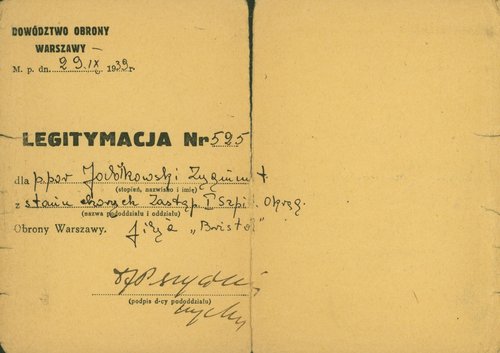 DOWÓDZTWO OBRONY
WARSZAWY
M. p. dn. 29 IX 1939 r.
LEGITYMACJA Nr 525
dla ppor Zygmunt
(stopień, nazwisko i imię)
z stanu chorych Zastęp. I Szpit. Okręg.
(nazwa pododdziału i oddziału)
Obrony Warszawy. filja „Bristol"
(podpis d-cy pododdziału)